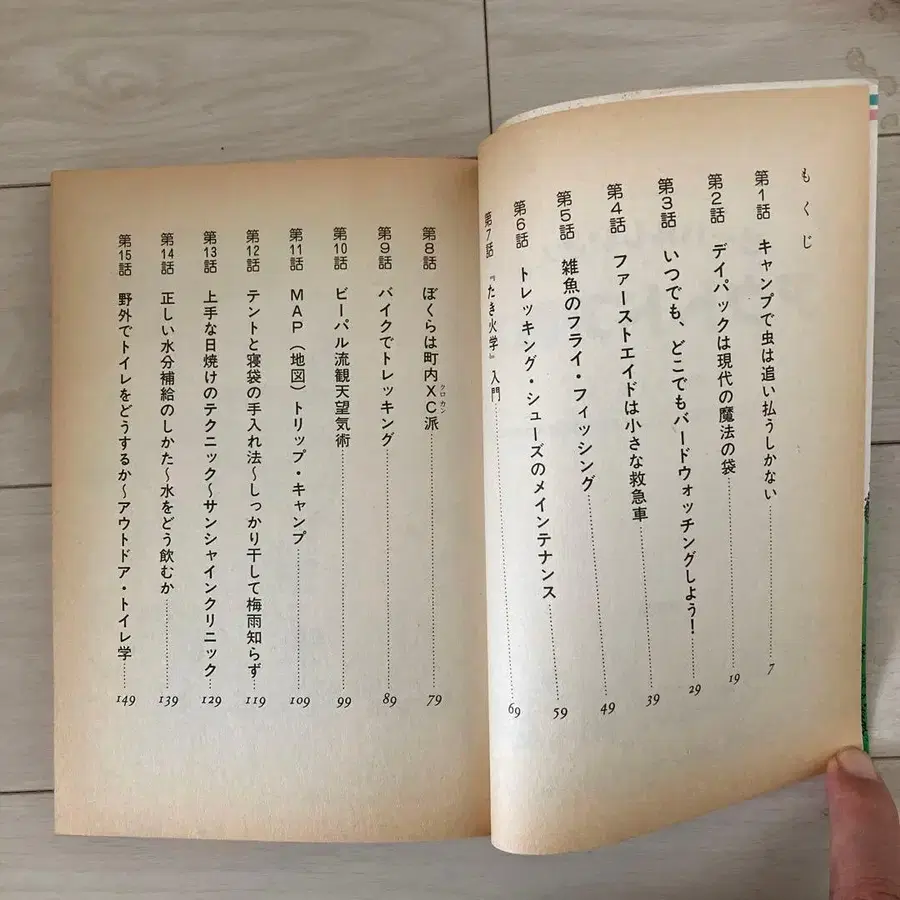 もくじ
第1話 キャンプで虫は追い払うしかない 7
第2話 デイパックは現代の魔法の袋 19
第3話 いつでも、どこでもバードウォッチングしよう! 29
第4話 ファーストエイドは小さな救急車 39
第5話 雑魚のフライ・フィッシング 49
第6話 トレッキング・シューズのメインテナンス 59
第7話 『たき火学』入門 69
第8話 ぼくらは町内XC派 79
クロカン
第9話 バイクでトレッキング 89
第10話 ビーパル流観天望気術 99
第11話 MAP(地図)トリップ・キャンプ 109
第12話 テントと寝袋の手入れ法〜しっかり干して梅雨知らず 119
第13話 上手な日焼けのテクニック〜サンシャインクリニック 129
第14話 正しい水分補給のしかた〜水をどう飲むか 139
第15話 野外でトイレをどうするか〜アウトドア・トイレ学 149